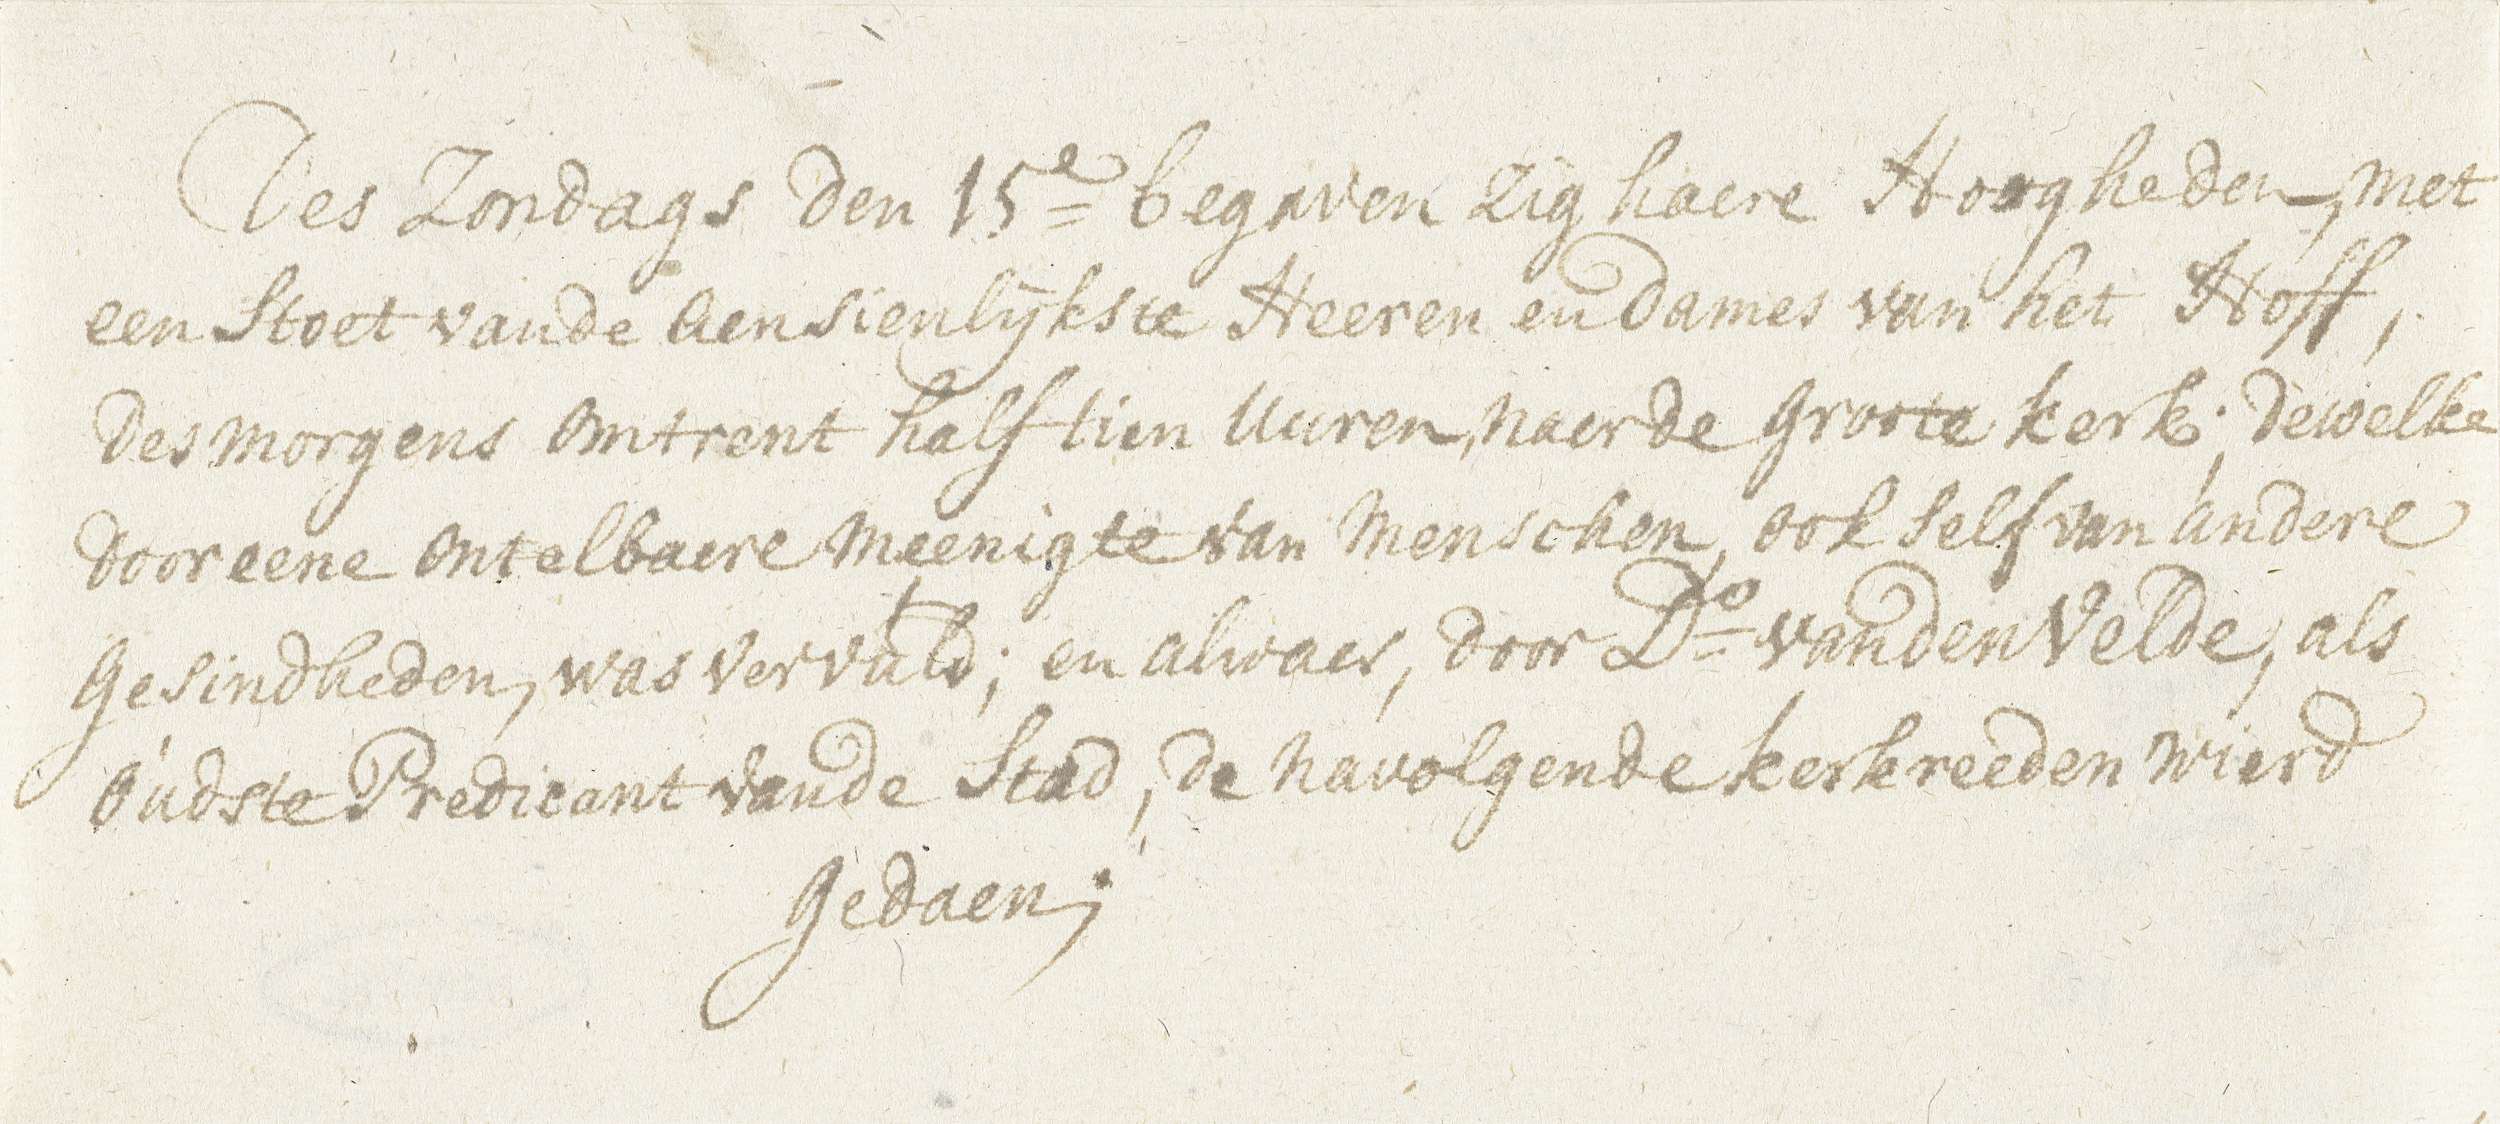 Des Zondags den 15e begaven zig haere Hoogheden, met
een Stoet vande Aensienlijkste Heeren en Dames van het Hoff,
des morgens omtrent half tien Uuren, naer de Groote kerk; dewelke
door eene ontelbaere Meenigte van Menschen, ook self van andere
Gesindheden, was vervuld; en alwaer, door Do vanden Velde, als
oudste Predicant vande Stad, de navolgende kerkreeden wierd
gedaen;